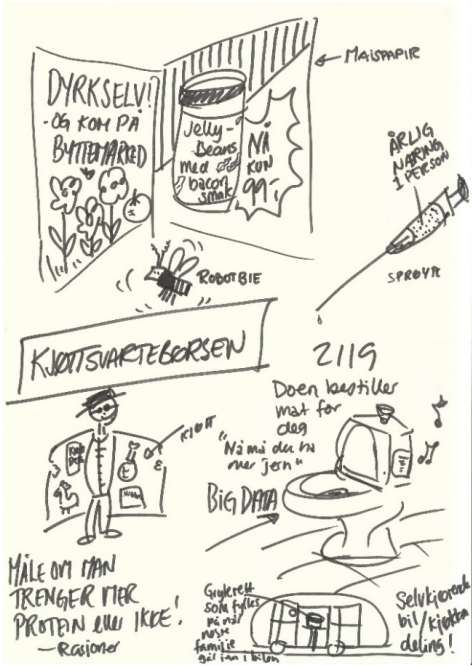 MAISPAPIR
DYRKSELV!
- OG KOM PÅ
BYTTEMARKED
Jelly-
Beans
med
bacon
smak
NÅ
KUN
99,-
ÅRLIG
NÆRING
1 PERSON
SPRØYTE
ROBOTBIE
KJØTTSVARTEBØRSEN
KJØTT
2119
Doen bestiller
mat for
deg
"Nå må du ha
mer jern"
BIG DATA
MÅLE OM MAN
TRENGER MER
PROTEIN eller IKKE!
- Rasjoner
som fylles
på når
neste
familie
går inn i bilen
Selvkjørende
bil /
deling!